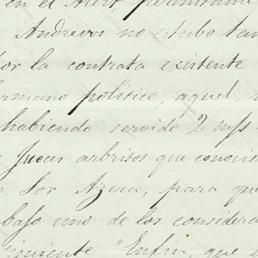 en el
Andrews no estubo tan
or la contrata existente
ermano politico, aquel,
habiendo servido 2 m/s
Jueces arbitros que conocie
Sor Azera, para que
bajo uno de los considera
"Enfin, que